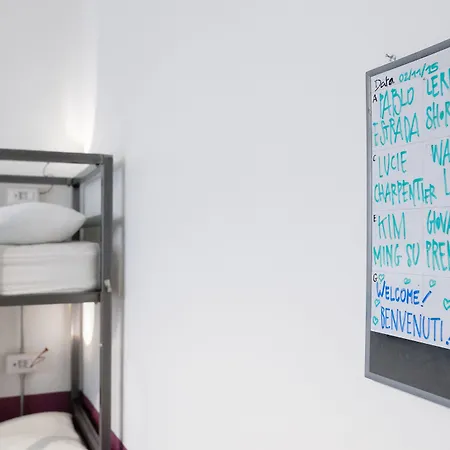 Data 02/11/15
A PABLO
ESTRADA SHOR
C LUCIE WA
CHARPENTIER L
E KIM GIOVA
MING SU PREM
G
WELCOME!
BENVENUTI!